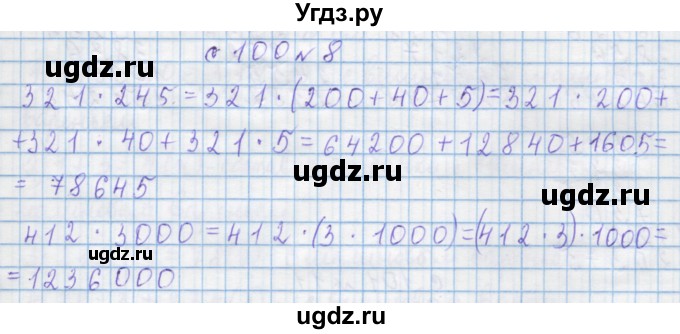 Угдз.ру
с 100 № 8
ugdz.ru
321 · 245 = 321 · (200+40+5) = 321 · 200+
ugdz.ru
+321 · 40+321 · 5 = 64200+12840+1605=
ugdz.ru
= 78645
ugdz.ru
412 · 3000 = 412 · (3 · 1000) = (412 · 3) · 1000=
ugdz.ru
=1236000
ugdz.ru